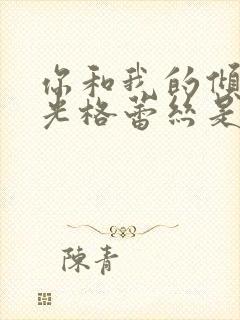 你和我的傾
光格蕾絲是
陳青